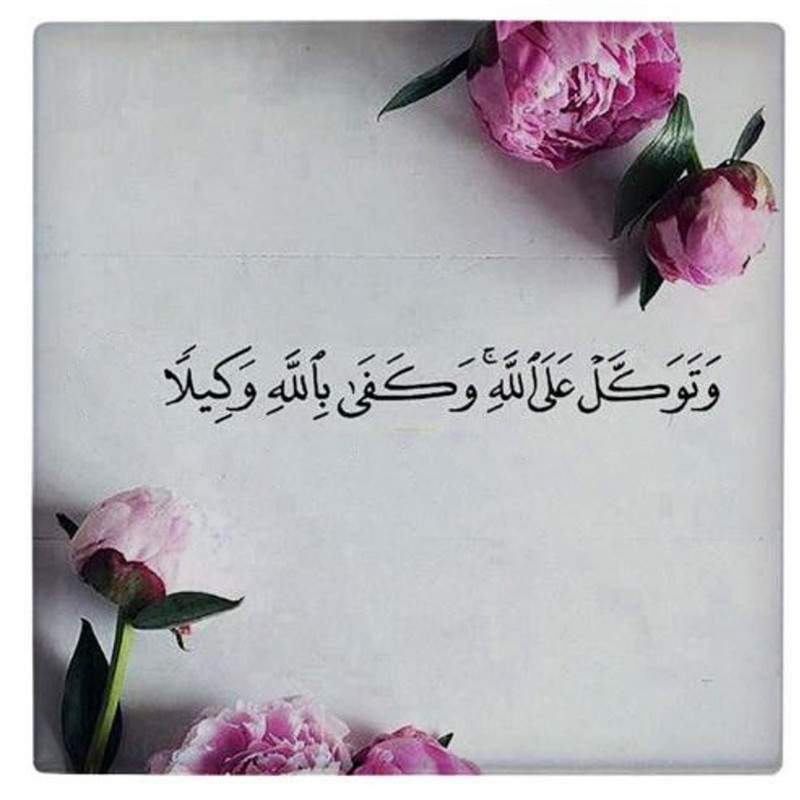 وَتَوَكَّلۡ عَلَى ٱللَّهِۚ وَكَفَىٰ بِٱللَّهِ وَكِيلًا